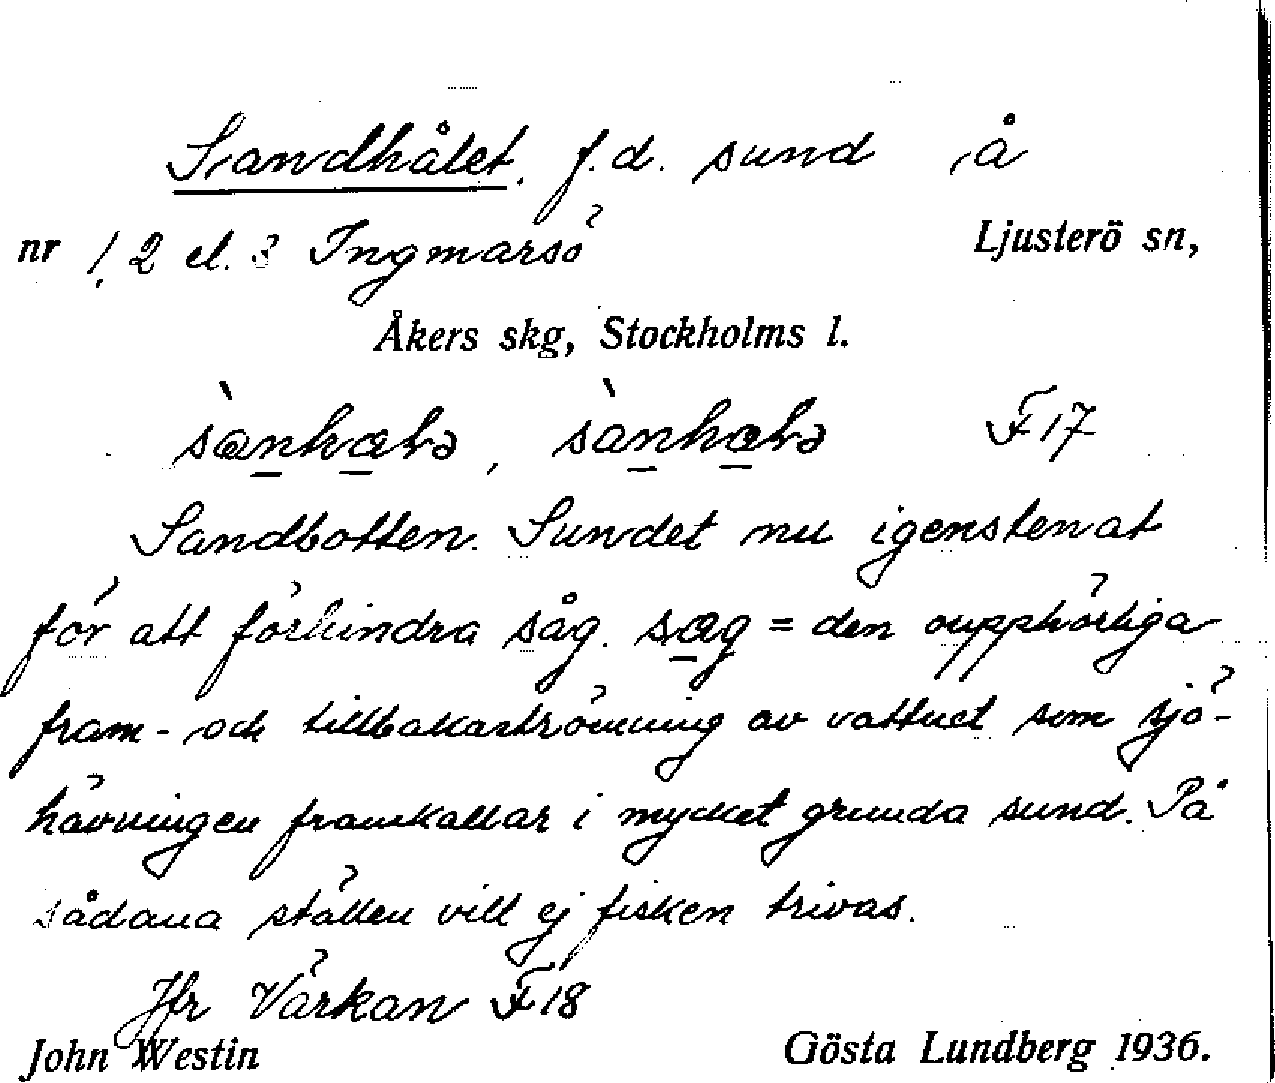 Sandhålet. f.d. sund å
nr 1, 2 el. 3 Ingmarsö Ljusterö sn,
Åkers skg, Stockholms l.
F 17
Sandbotten. Sundet nu igenstenat
för att förhindra såg. sæg = den oupphörliga
fram- och tillbakaströmning av vattnet som sjö-
hävningen framkallar i mycket grunda sund. På
sådana ställen vill ej fisken trivas.
Jfr Värkan F 18
John Westin Gösta Lundberg 1936.